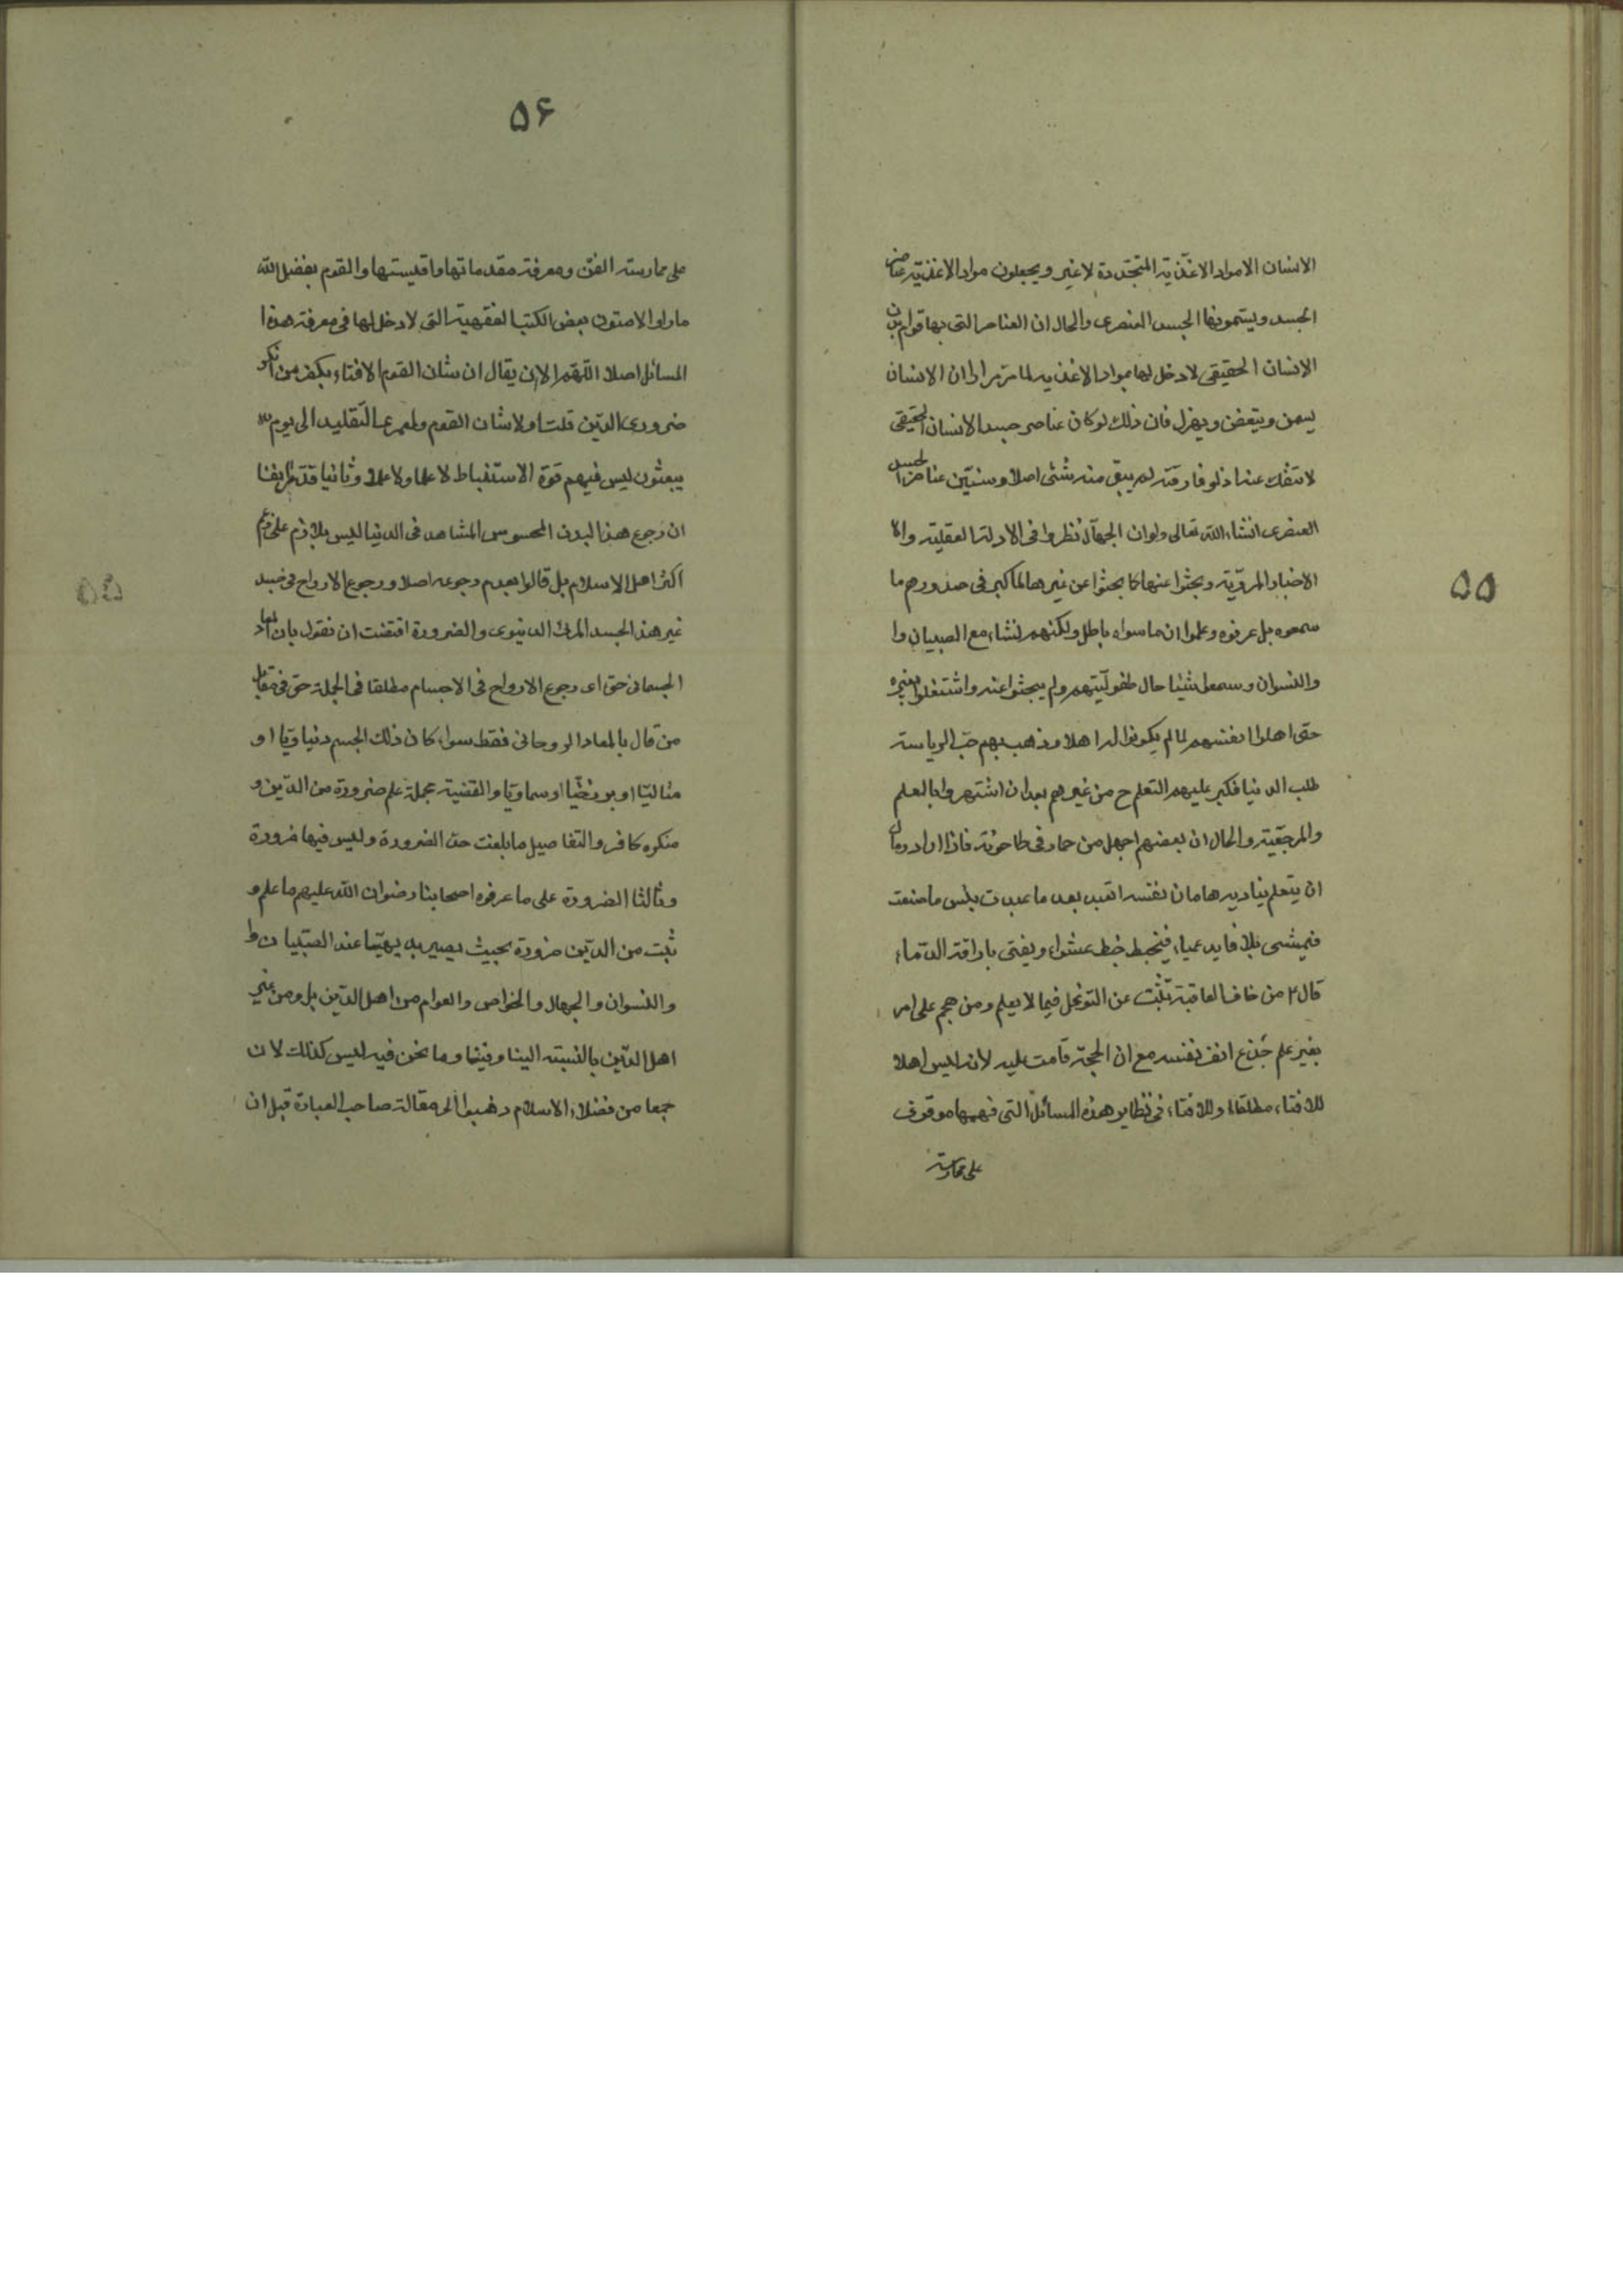 ۵۵
الانسان الا مواد الاغذية المتجددة لا غير ويجعلون مواد الاغذية عناصر
الجسد ويسمونها الجسد العنصرى والحال ان العناصر التى بها قوام بدن
الانسان الحقيقى لا دخل لها بمواد الاغذيه لما مر مرارا ان الانسان
يسمن ويتعفن ويهزل فان ذلك لو كان عناصر جسد الانسان الحقيقى
لا تنفك عنه اذ لو فارقته لم يبق منه شئى اصلا وسنبين عناصر الجسد
العنصرى انشاء الله تعالى ولو ان الجهال نظروا فى الادلة العقلية والا
الاخبار المروية وبحثوا عنها كما بحثوا عن غيرها لما كبر فى صدورهم ما
سمعوه بل عرفوه وعلموا ان ما سواه باطل ولكنهم نشاء مع الصبيان وا
والنسوان وسمعوا شيئا حال طفوليتهم ولم يبحثوا عنه واشتغلوا بغيره
حتى اهلوا نفسهم لما لم يكونوا له اهلا وذهب بهم حب الرياسة
طلب الدنيا فكبر عليهم التعلم ح من غيرهم بعد ان اشتهروا بالعلم
والمرجعية والحال ان بعضهم اجهل من حمار فى طاحونة فاذا اراد رومان
ان يتعلم يناديه هامان نفسه اتعبد بعد ما عبدت بئس ما صنعت
فيمشى بلا قايد عمياء فيخبط خبط عشواء ويفتى باراقة الدماء
قال ع من خاف العاقبة تثبت عن التوغل فيما لا يعلم ومن هجم على امر
بغير علم جذع انف نفسه مع ان الحجة قامت عليه لانه ليس اهلا
للافتاء مطلقا وللافتاء فى نظاير هذه المسائل التى فهمها موقوف
على ممارسة
۵۶
على ممارسته الفن ومعرفة مقدماتها واقيستها والقوم بفضل الله
ما راوا الا متون بعض الكتب الفقهية التى لا دخل لها فى معرفة هذه ا
المسائل اصلا اللهم الا ان يقال ان شان القوم الافتاء بكفر من انكر
ضرورى الدين قلت اولا شان القوم ولعمرى التقليد الى يوم
يبعثون ليس فيهم قوة الاستنباط لا علما ولا عملا وثانيا قد عرفنا
ان رجوع هذا البدن المحسوس المشاهد فى الدنيا ليس بلازم على زعم
اكثر اهل الاسلام بل قالوا بعدم رجوعه اصلا ورجوع الارواح فى جسد
غير هذا الجسد المرئى الدنيوى والضرورة اقتضت ان نقول بان المعاد
الجسمانى حق اى رجوع الارواح فى الاجسام مطلقا فى الجملة حق فى مقابل
من قال بالمعاد الروحانى فقط سواء كان ذلك الجسم دنياويا او
مثاليا او برزخيا او سماويا والقضية مجملة علم ضرورة من الدين و
منكره كافر والتفاصيل ما بلغت حد الضرورة وليس فيها ضرورة
وثالثا الضرورة على ما عرفوه اصحابنا رضوان الله عليهم ما علم و
ثبت من الدين ضرورة بحيث يصير بديهيا عند الصبيان وا
والنسوان والجهال والخواص والعوام من اهل الدين بل ومن غير
اهل الدين بالنسبته الينا وفينا وما نحن فيه ليس كذلك لان
جمعا من فضلاء الاسلام ذهبوا الى مقالة صاحب العبارة قبل ان